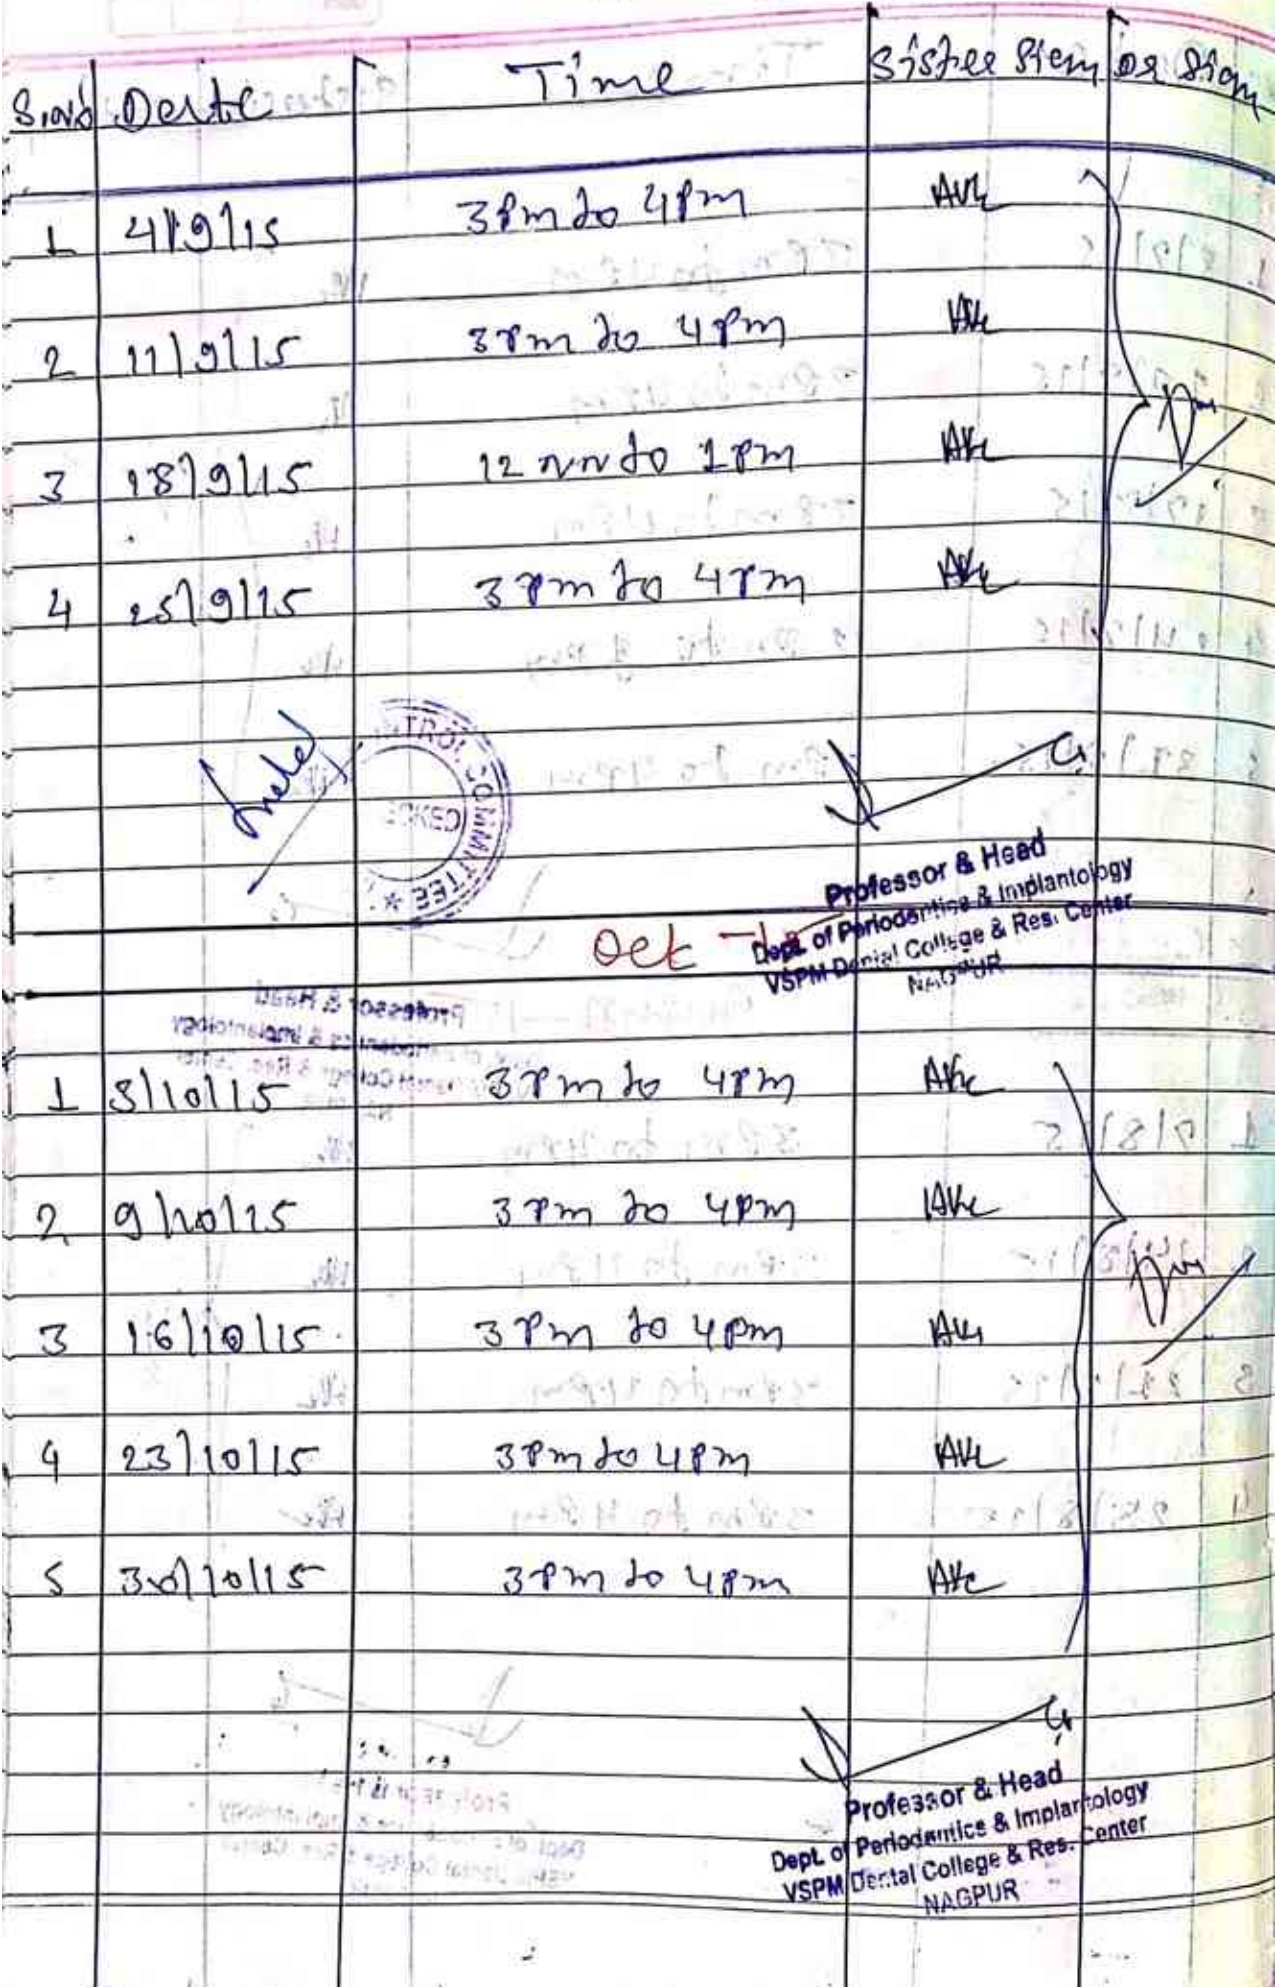 S.No Date Time Sister Sign Dr Sign
1 4/9/15 3pm to 4pm
2 11/9/15 3pm to 4pm
3 18/9/15 12 nn to 1pm
4 25/9/15 3pm to 4pm
COMMITTEE *
Professor & Head
Dept. of Periodontics & Implantology
VSPM Dental College & Res. Center
NAGPUR
Oct
1 3/10/15 3pm to 4pm
2 9/10/15 3pm to 4pm
3 16/10/15 3pm to 4pm
4 23/10/15 3pm to 4pm
5 30/10/15 3pm to 4pm
Professor & Head
Dept. of Periodontics & Implantology
VSPM Dental College & Res. Center
NAGPUR